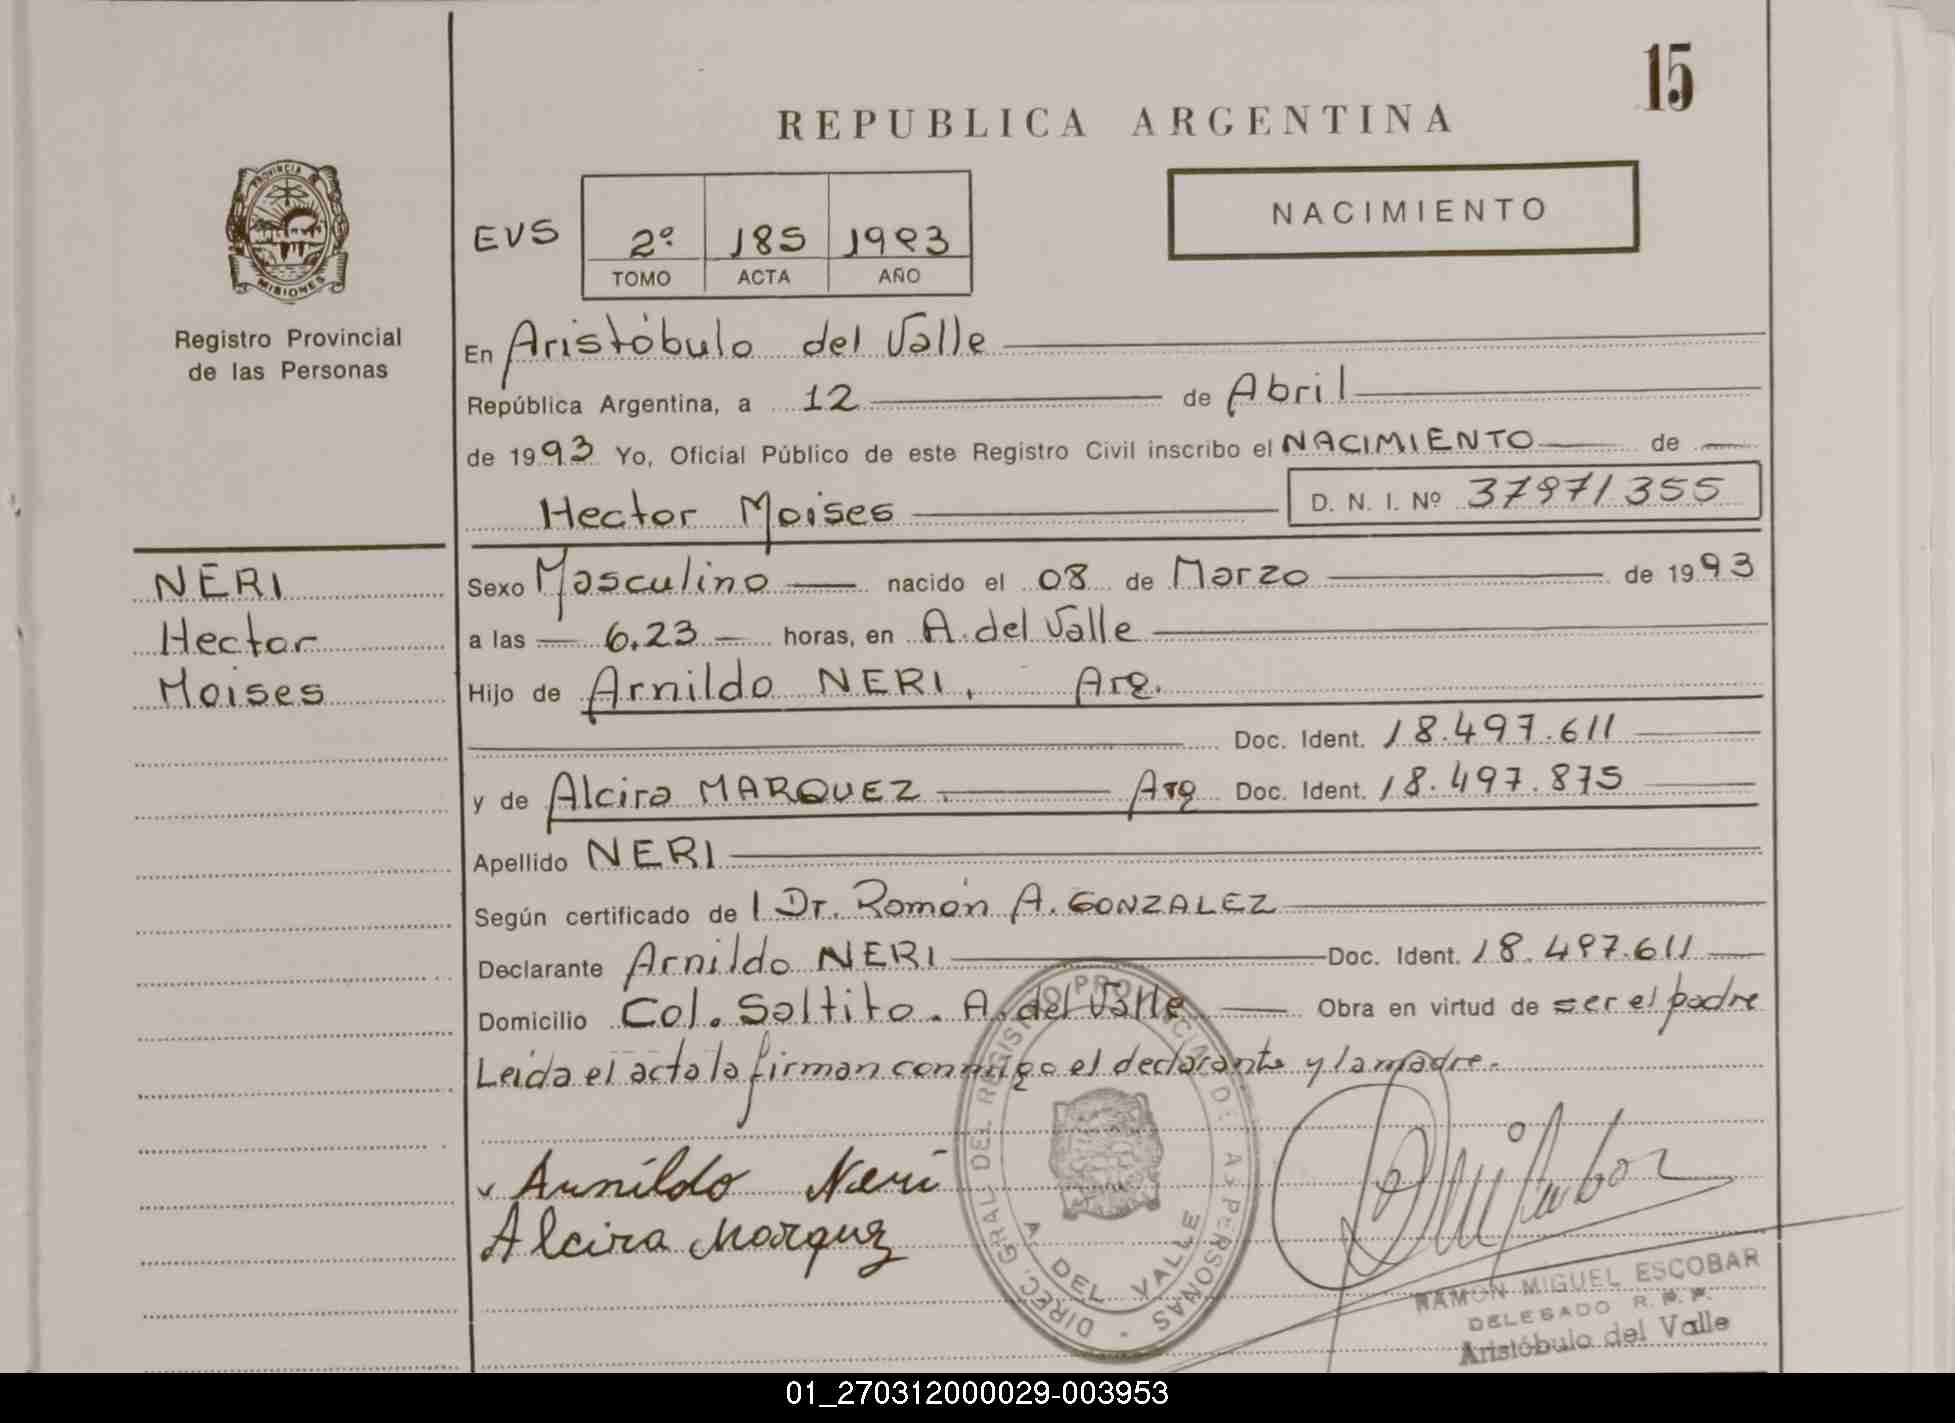 15
REPUBLICA ARGENTINA
PROVINCIA
MISIONES
Registro Provincial
de las Personas
EVS
2º 185 1993
TOMO ACTA AÑO
NACIMIENTO
En Aristóbulo del Valle
República Argentina, a 12 de Abril
de 1993 Yo, Oficial Público de este Registro Civil inscribo el NACIMIENTO de
Hector Moises D. N. I. Nº 37971355
NERI
Hector
Moises
Sexo Masculino nacido el 08 de Marzo de 1993
a las 6.23 horas, en A. del Valle
Hijo de Arnildo NERI, Arg.
Doc. Ident. 18.497.611
y de Alcira MARQUEZ. Arg Doc. Ident. 18.497.875
Apellido NERI
Según certificado de l Dr. Ramón A. GONZALEZ
Declarante Arnildo NERI Doc. Ident. 18.497.611
Domicilio Col. Saltito. A. del Valle Obra en virtud de ser el padre
Leída el acta la firman conmigo el declarante y la madre.
Arnildo Neri
Alcira Marquz
DIREC. GRAL DEL REGISTRO PROVINCIAL DE LAS PERSONAS
A. DEL VALLE
RAMON MIGUEL ESCOBAR
DELEGADO R. P. P.
Aristóbulo del Valle
01_270312000029-003953